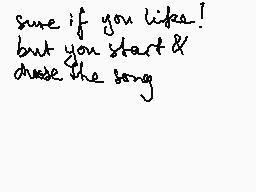 sure if you like!
but you start &
choose the song